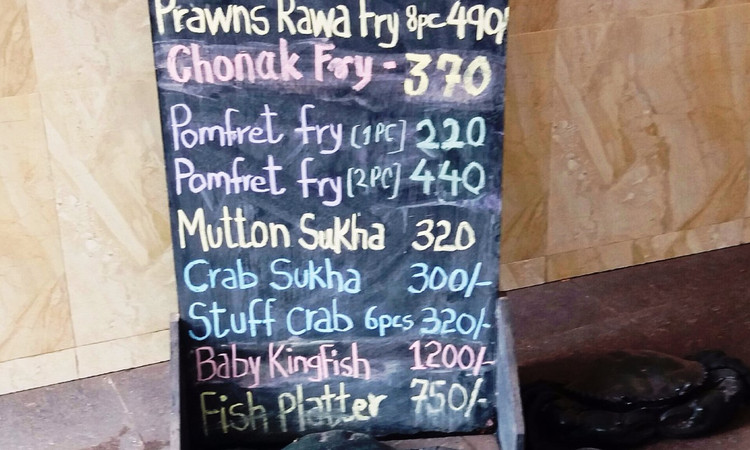 Prawns Rawa Fry 8pc 490/
Chonak Fry - 370
Pomfret fry [1PC] 220
Pomfret fry [2PC] 440
Mutton Sukha 320
Crab Sukha 300/-
Stuff Crab 6pcs 320/-
Baby Kingfish 1200/-
Fish Platter 750/-